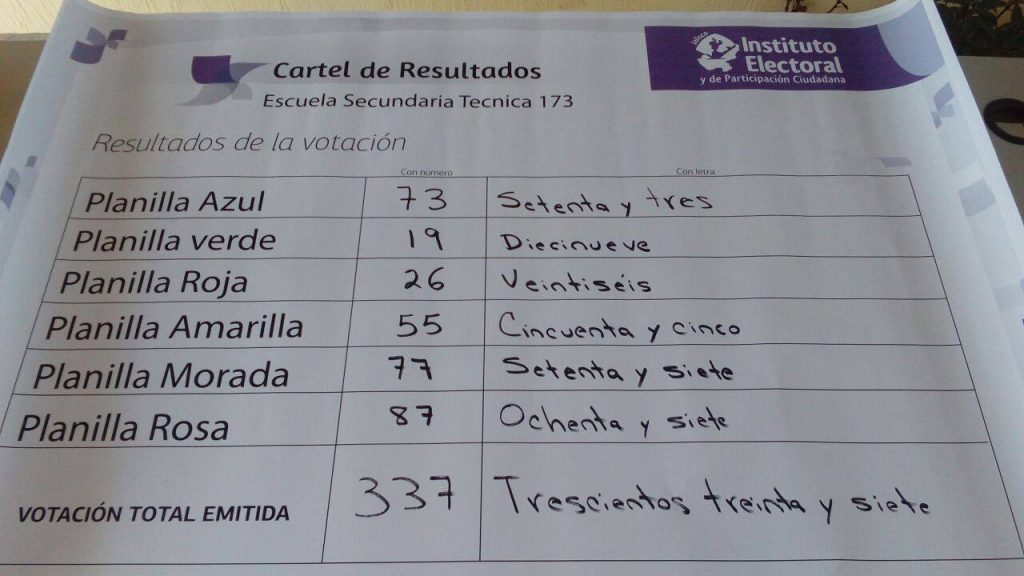 Cartel de Resultados
Escuela Secundaria Tecnica 173
Jalisco
Instituto
Electoral
y de Participación Ciudadana
Resultados de la votación
Con número Con letra
Planilla Azul 73 Setenta y tres
Planilla verde 19 Diecinueve
Planilla Roja 26 Veintiséis
Planilla Amarilla 55 Cincuenta y cinco
Planilla Morada 77 Setenta y siete
Planilla Rosa 87 Ochenta y siete
VOTACIÓN TOTAL EMITIDA 337 Trescientos treinta y siete